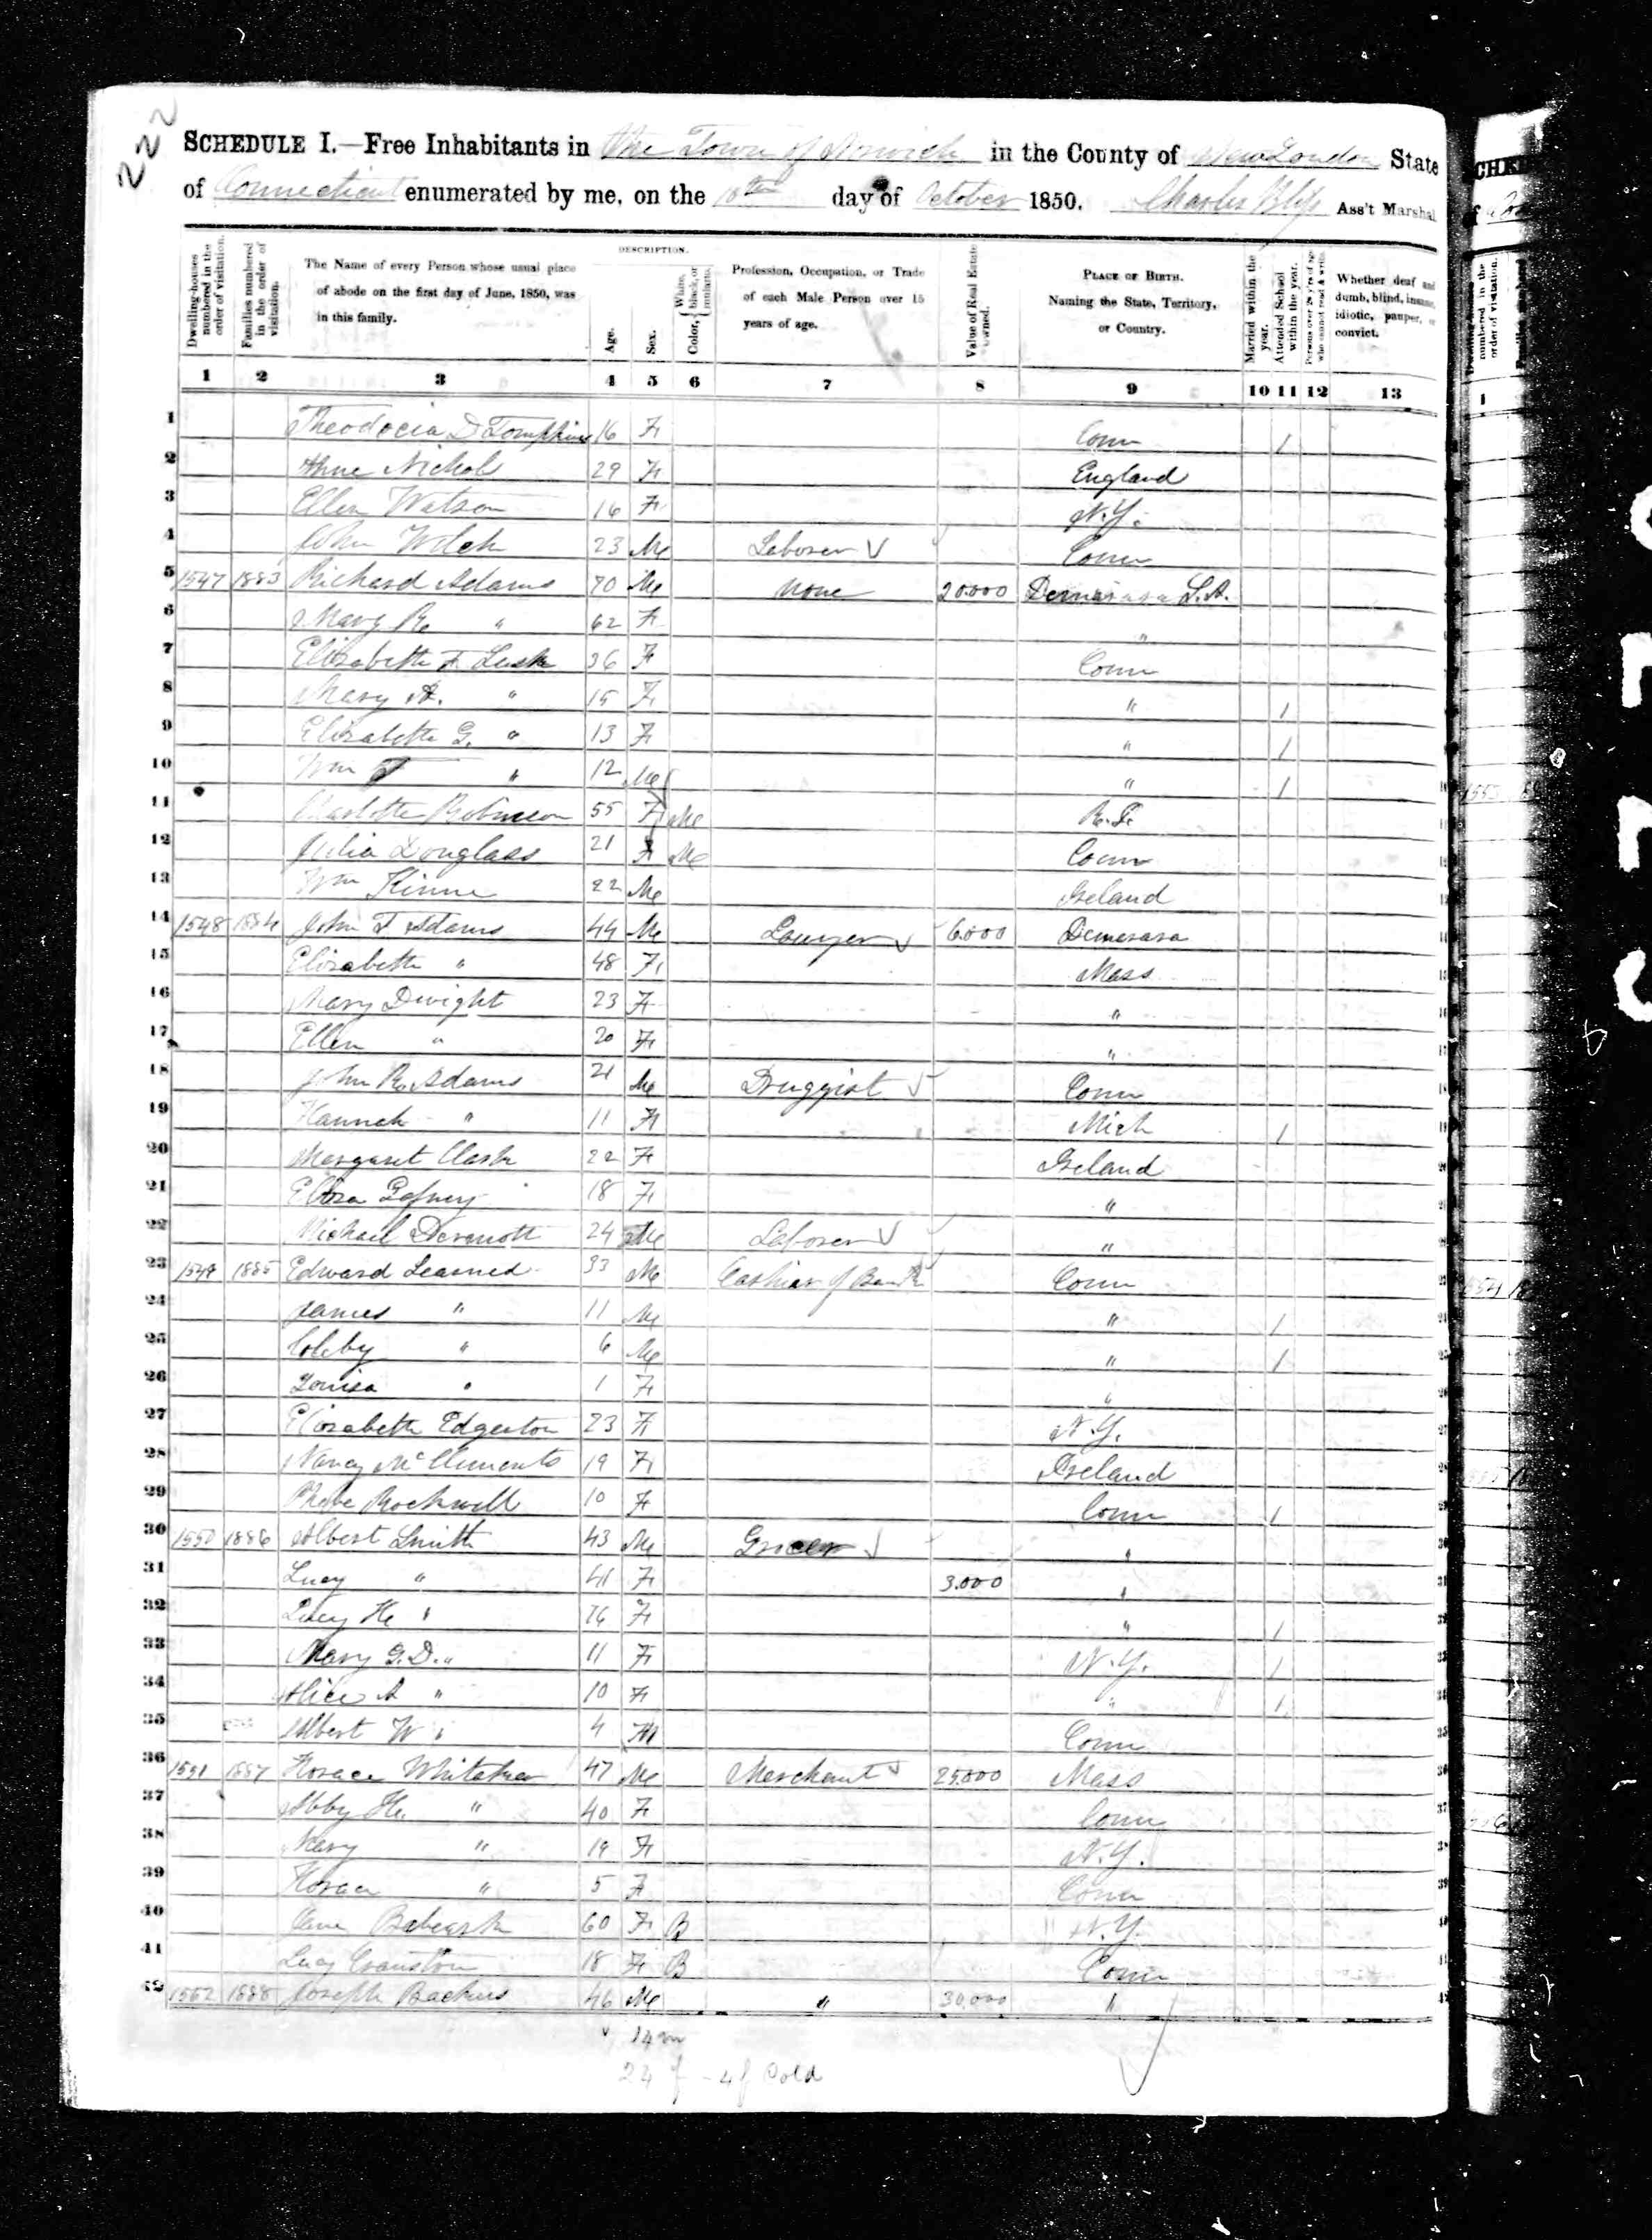 222
SCHEDULE I.—Free Inhabitants in the Town of Norwich in the County of New London State
of Connecticut enumerated by me, on the 10th day of October 1850. Charles Bliss Ass't Marshal
Dwelling-houses numbered in the order of visitation. Families numbered in the order of visitation. The Name of every Person whose usual place of abode on the first day of June, 1850, was in this family. DESCRIPTION. Age. Sex. Color, { White, black, or mulatto. Profession, Occupation, or Trade of each Male Person over 15 years of age. Value of Real Estate owned. PLACE OF BIRTH. Naming the State, Territory, or Country. Married within the year. Attended School within the year. Persons over 20 y'rs of age who cannot read & write Whether deaf and dumb, blind, insane, idiotic, pauper, or convict.
1 2 3 4 5 6 7 8 9 10 11 12 13
1 Theodocia D Tompkins 16 F Conn 1
2 Anne Nichol 29 F England
3 Ellen Watson 16 F N.Y.
4 John Welch 23 M Laborer Conn
5 1547 1883 Richard Adams 70 M None 20.000 Demarara S.A.
6 Mary R. " 62 F "
7 Elizabeth F. Lusk 36 F Conn
8 Mary A. " 15 F " 1
9 Elizabeth G. " 13 F " 1
10 Wm T " 12 M " 1
11 Charlotte Robinson 55 F M R.I.
12 Julia Douglass 21 F M Conn
13 Wm Kinne 22 M Ireland
14 1548 1884 John T Adams 44 M Lawyer 6.000 Demerara
15 Elizabeth " 48 F Mass
16 Mary Dwight 23 F "
17 Ellen " 20 F "
18 John R. Adams 21 M Druggist Conn
19 Hannah " 11 F Mich 1
20 Margaret Clark 22 F Ireland
21 Eliza 18 F "
22 Michael Dermott 24 M Laborer "
23 1549 1885 Edward Learned 33 M Cashier of Bank Conn
24 James " 11 M " 1
25 " 6 M " 1
26 Louisa " 1 F "
27 Elizabeth Edgerton 23 F N.Y.
28 Nancy McClements 19 F Ireland
29 Phebe Rockwell 10 F Conn 1
30 1550 1886 Albert Smith 43 M Grocer "
31 Lucy " 41 F 3.000 "
32 Lucy H. " 16 F " 1
33 Mary G.D. " 11 F N.Y. 1
34 Alice A " 10 F " 1
35 Albert W " 4 M Conn
36 1551 1887 Horace Whitaker 47 M Merchant 25.000 Mass
37 Abby H. " 40 F Conn
38 Mary " 19 F N.Y.
39 Horace " 5 F Conn
40 Jane Babcock 60 F B N.Y.
41 Lucy Cranston 18 F B Conn
42 1552 1888 Joseph Backus 46 M " 30,000 "
14 m
24 f - 4 f Cold